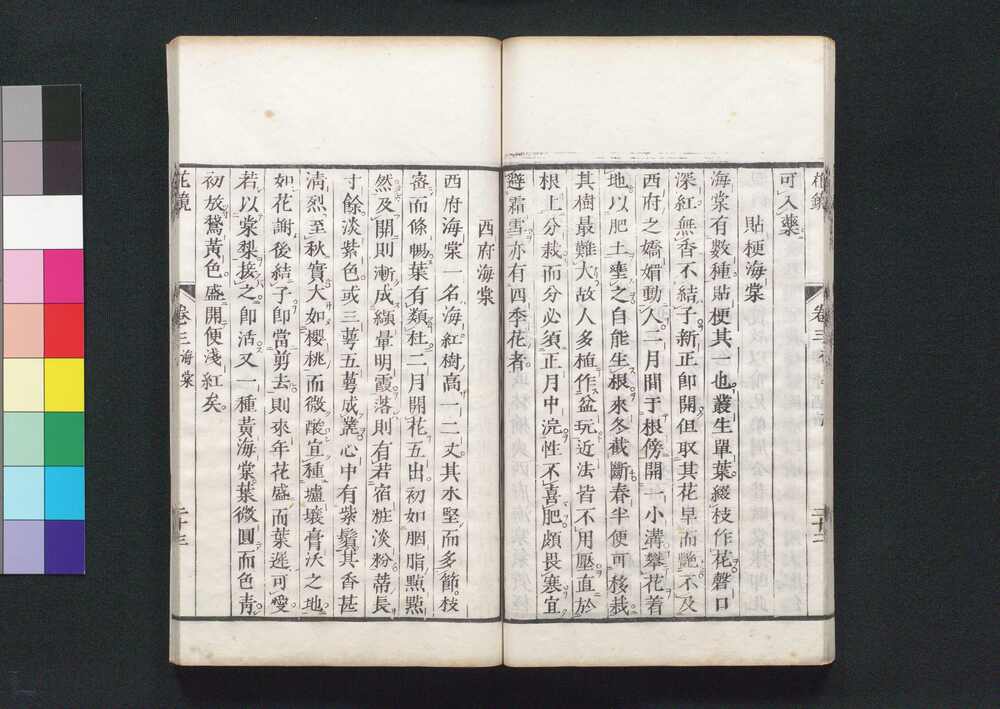 花鏡
可入藥
貼梗海棠
海棠有數種貼梗其一也叢生單葉綴枝作花磬口
深紅無香不結子新正即開但取其花早而艷不及
西府之嬌媚動人二月間于根傍開一小溝攀花着
地以肥土壅之自能生根來冬截斷春半便可移栽
其樹最難大故人多植作盆玩近法皆不用壓直於
根上分栽而分必須正月中浣性不喜肥頗畏寒宜
避霜雪亦有四季花者
卷三
二十二
西府海棠
西府海棠一名海紅樹高一二丈其木堅而多節枝
密而條暢葉有類杜二月開花五出初如胭脂點點
然及開則漸成纈暈明霞落則有若宿粧淡粉蒂長
寸餘淡紫色或三萼五萼成叢心中有紫鬚其香甚
清烈至秋實大如櫻桃而微酸宜種壚壤膏沃之地
如花謝後結子即當剪去則來年花盛而葉遲可愛
若以棠梨接之即活又一種黃海棠葉微圓而色青
初放鵞黃色盛開便淺紅矣
花鏡
卷三海棠
二十三